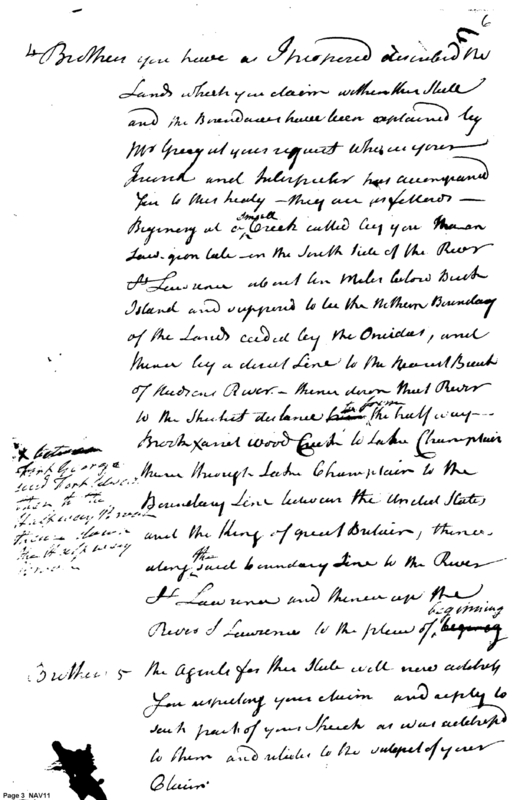 6
4 Brothers you have as I proposed described the
Lands which you claim within this State
and the Boundaries have been explained by
Mr Gray at your request who is your
Friend and Interpreter has accompanied
You to this treaty – they are as follows –
Beginning at a small Creek called by you
in the South side of the River
St Lawrence about ten Miles below Buck
Island and supposed to be the Northern Boundary
of the Lands ceded by the Oneidas, and
thence by a direct Line to the nearest Bank
of Hudsons River – thence down that River
to the Shortest distance the half way
Brook x and wood Creek to Lake Champlain
x between
Fort George
and Fort Edward
then to the
Half way Brook
thence down
the Half way
Brook
thence through Lake Champlain to the
Boundary Line between the United States
and the King of great Britain, thence
along the said boundary Line to the River
St Lawrence and thence up the
River St Lawrence to the place of beginning
Brothers 5 the Agents for this State will now address
You respecting your claim and reply to
such part of your Speech as was addressed
to them and relates to the subject of your
Claim
Page 3 NAV11